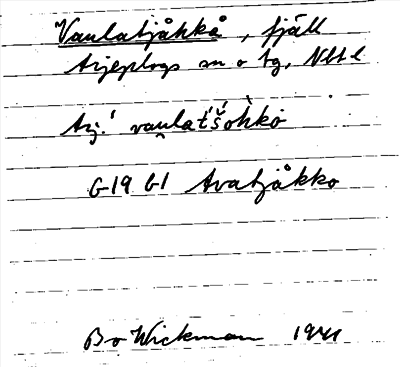 Vaulatjåhkå, fjäll
Arjeplogs sn o tg, Nbt l
Arj. vau̯lat́šohkò
G19 61 Avatjåkko
Bo Wickman 1941